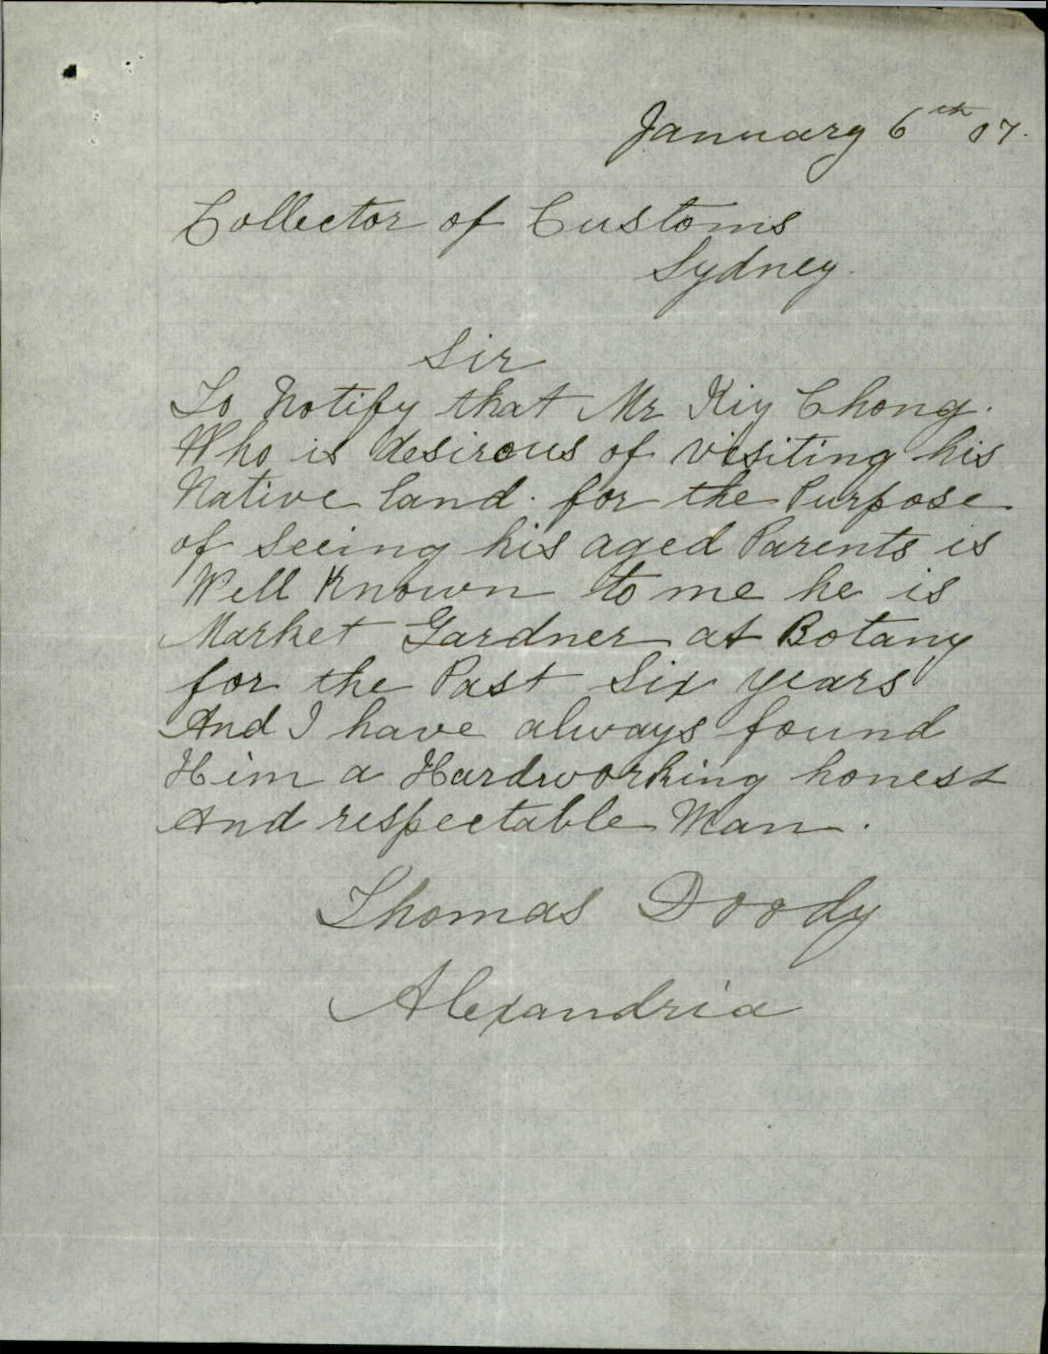 January 6th 07.
Collector of Customs
Sydney.
Sir
To Notify that Mr Kiy Chong.
Who is desirous of visiting his
Native land. for the Purpose
of Seeing his aged Parents is
Well Known to me he is
Market Gardner at Botany
for the Past Six years
And I have always found
Him a Hardworking honest
And respectable Man.
Thomas Doody
Alexandria